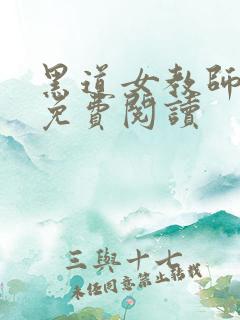 黑道女教師
免費閱讀
三與十七
未經同意禁止轉載